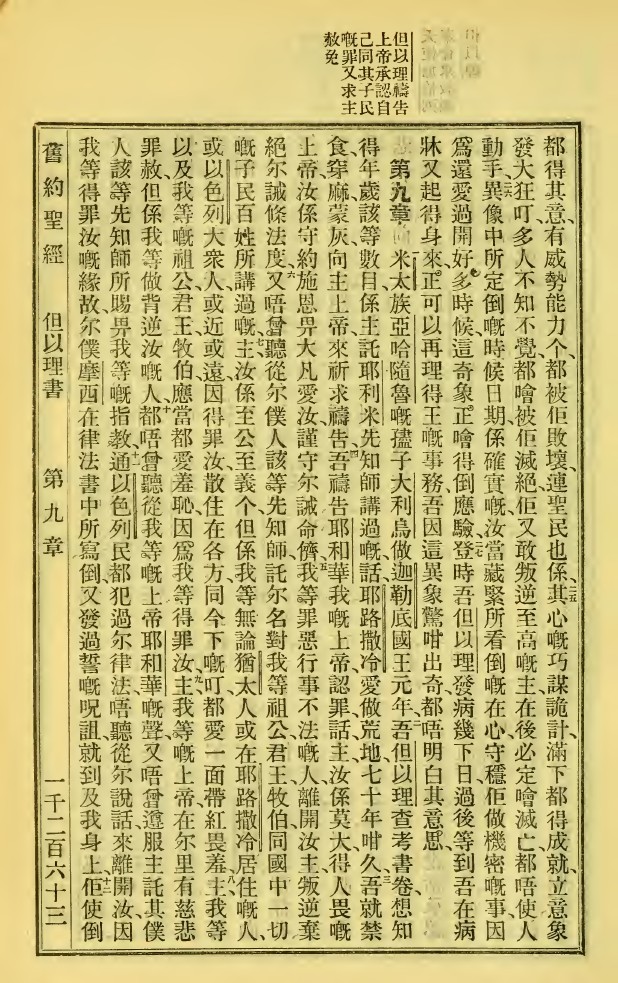 但以理禱告
上帝承認自
己同其子民
嘅罪又求主
赦免
都得其意、有威勢能力个、都被佢敗壞、連聖民也係、二五其心嘅巧謀詭計、滿下都得成就、立意象
發大狂、叮多人不知不覺都噲被佢滅絕、佢又敢叛逆至高嘅主、在後必定噲滅亡、都唔使人
動手、二六異像中所定倒嘅時候日期、係確實嘅、汝當藏緊所看倒嘅在心、守穩佢做機密嘅事、因
爲還愛過開好多時候、這奇象正噲得倒應驗、二七登時吾但以理發病幾下日、過後等到吾在病
牀又起得身來、正可以再理得王嘅事務、吾因這異象驚咁出奇、都唔明白其意思、
第九章 米太族亞哈隨魯嘅𡥧子大利烏做迦勒底國王元年、二吾但以理查考書卷、想知
得年歲該等數目、係主託耶利米先知師講過嘅話、耶路撒冷愛做荒地七十年咁久、三吾就禁
食穿麻蒙灰、向主上帝來祈求禱告、四吾禱告耶和華我嘅上帝、認罪話、主汝係莫大得人畏嘅
上帝、汝係守約施恩畀大凡愛汝謹守尔誡命儕、五我等罪惡行事不法嘅人、離開汝主、叛逆棄
絕尔誡條法度、六又唔曾聽從尔僕人該等先知師、託尔名對我等祖公君王牧伯、同國中一切
嘅子民百姓所講過嘅、七主汝係至公至義个、但係我等無論猶太人、或在耶路撒冷居住嘅人、
或以色列大衆人、或近或遠、因得罪汝、散住在各方、同今下嘅叮、都愛一面帶紅畏羞、八主、我等
以及我等嘅祖公君王牧伯、應當都愛羞恥、因爲我等得罪汝、九主我等嘅上帝、在尔里有慈悲
罪赦、但係我等做背逆汝嘅人、十都唔曾聽從我等嘅上帝耶和華嘅聲、又唔曾遵服主託其僕
人該等先知師所賜畀我等嘅指教、十一通以色列民都犯過尔律法、唔聽從尔說話來離開汝、因
我等得罪汝嘅緣故、尔僕摩西在律法書中所寫倒、又發過誓嘅呪詛、就到及我身上、十二佢使倒
舊約聖經 但以理書 第九章 一千二百六十三